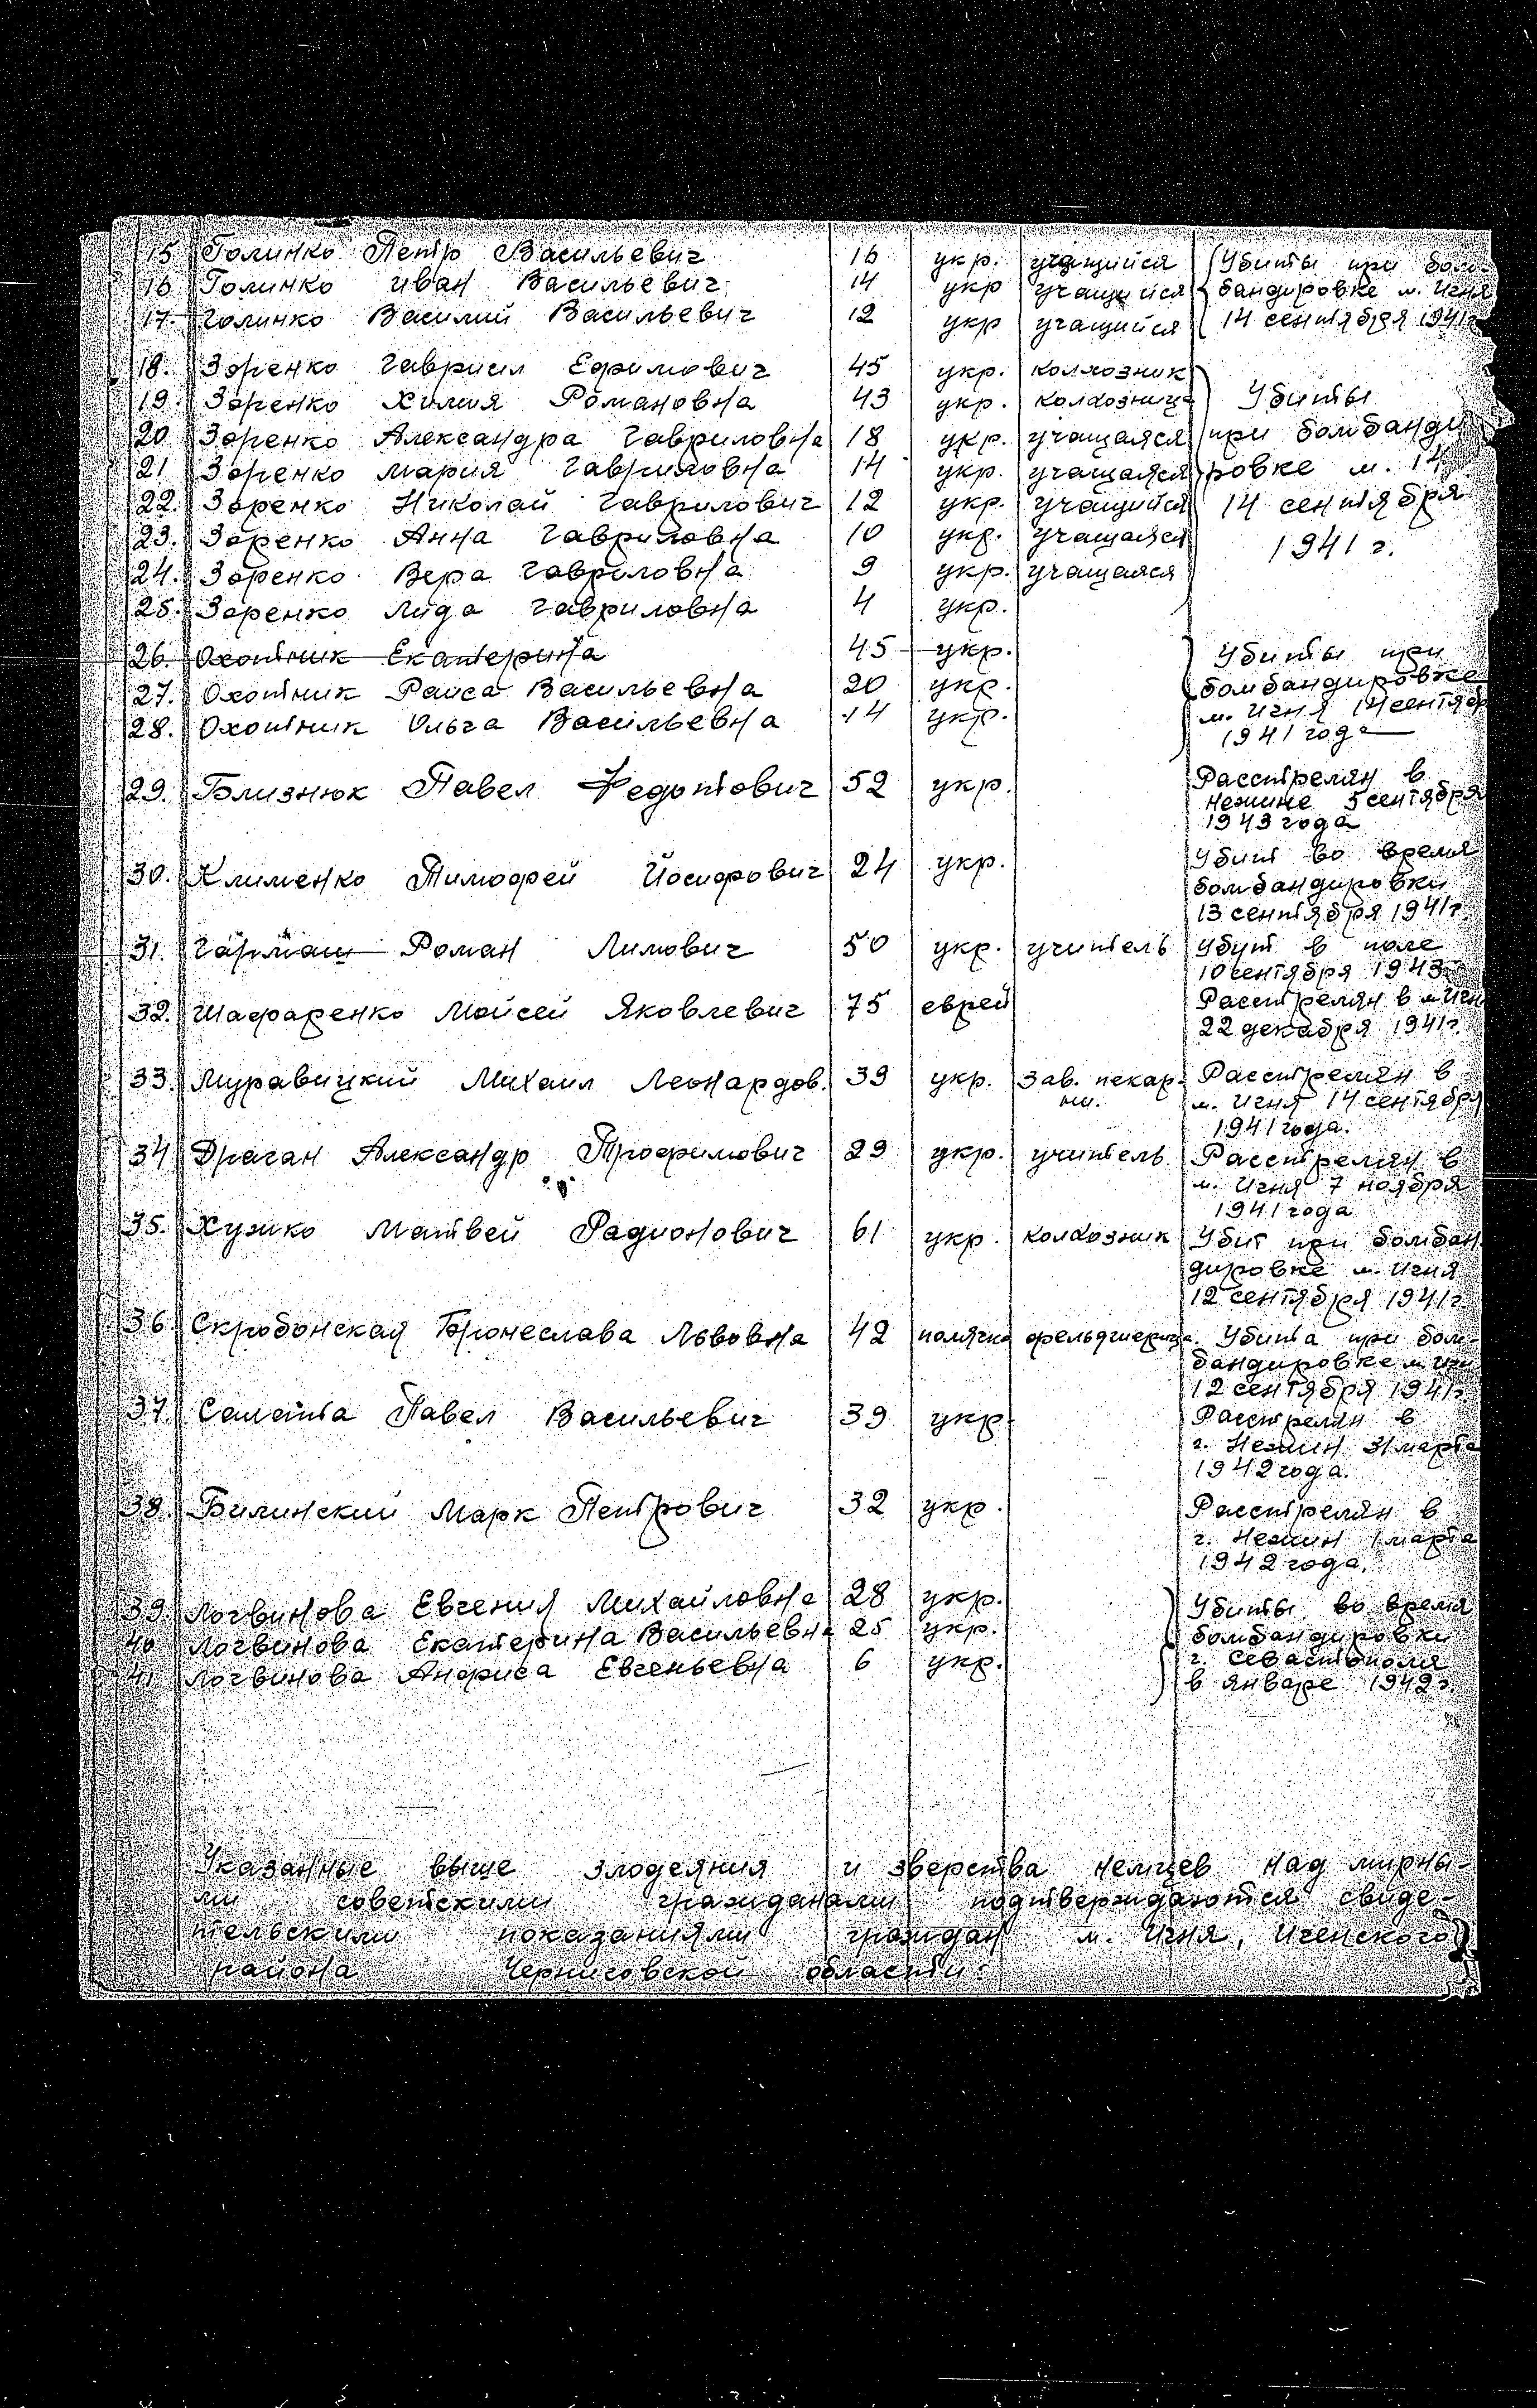 15 Голинко Петр Васильевич 16 укр. учащийся Убиты при бом-
16 Голинко Иван Васильевич 14 укр учащийся бандировке м. Ичня
17. Голинко Василий Васильевич 12 укр учащийся 14 сентября 1941г
18. Зоренко Гавриил Ефимович 45 укр. колхозник
19. Зоренко Химия Романовна 43 укр. колхозница Убиты
20 Зоренко Александра Гавриловна 18 укр. учащаяся при бомбанди
21 Зоренко Мария Гавриловна 14 укр. учащаяся ровке м.
22. Зоренко Николай Гаврилович 12 укр. учащийся 14 сентября
23. Зоренко Анна Гавриловна 10 укр. учащаяся 1941 г.
24. Зоренко Вера Гавриловна 9 укр. учащаяся
25. Зоренко Лида Гавриловна 4 укр.
26. Охотник Екатерина 45 укр. Убиты при
27. Охотник Раиса Васильевна 20 укр. бомбандировке
28. Охотник Ольга Васильевна 14 укр. м. Ичня 14 сентяб
1941 года
29. Близнюк Павел Федотович 52 укр. Расстрелян в
Нежине 5 сентября
1943 года
30. Клименко Тимофей Йосифович 24 укр. Убит во время
бомбандировки
13 сентября 1941г.
31. Гармаш Роман Лимович 50 укр. учитель Убит в поле
10 сентября 1943
32. Шафаренко Мойсей Яковлевич 75 еврей Расстрелян в м Ичн
22 декабря 1941г.
33. Муравицкий Михаил Леонардов. 39 укр. Зав. пекар- Расстрелян в
ни. м. Ичня 14 сентября
1941 года.
34 Драган Александр Трофимович 29 укр. учитель Расстрелян в
м. Ичня 7 ноября
1941 года
35. Хужко Матвей Радионович 61 укр. колхозник Убит при бомбан
дировке м. Ичня
12 сентября 1941г
36 Скробонская Бронеслава Львовна 42 полячка фельдшерица. Убита при бом-
бандировке м Ичн
12 сентября 1941г
37. Самета Павел Васильевич 39 укр. Расстрелян в
г. Нежин 31 марта
1942 года.
38. Билинский Марк Петрович 32 укр. Расстрелян в
г. Нежин 1 марта
1942 года.
39 Логвинова Евгения Михайловна 28 укр. Убиты во время
40 Логвинова Екатерина Васильевна 25 укр. бомбандировки
41 Логвинова Андриса Евгеньевна 6 укр. г. Севастополя
в январе 1942г.
Указанные выше злодеяния и зверства немцев над мирны-
ми советскими гражданами подтверждаются свиде-
тельскими показаниями граждан м. Ичня, Иченского
района Черниговской области: